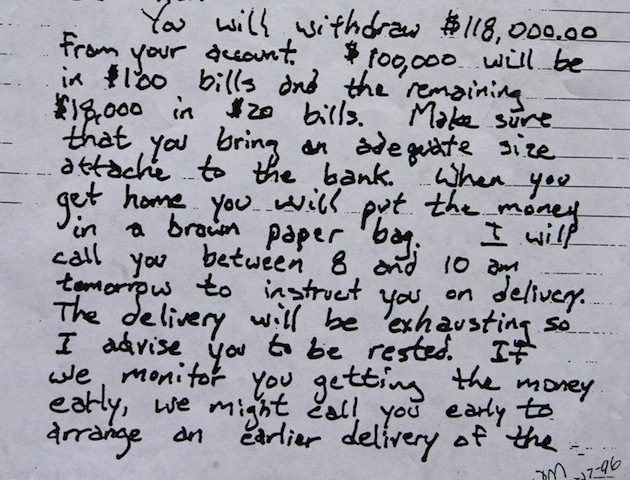 You will withdraw $118,000.00
from your account. $100,000 will be
in $100 bills and the remaining
$18,000 in $20 bills. Make sure
that you bring an adequate size
attache to the bank. When you
get home you will put the money
in a brown paper bag. I will
call you between 8 and 10 am
tomorrow to instruct you on delivery.
The delivery will be exhausting so
I advise you to be rested. If
we monitor you getting the money
early, we might call you early to
arrange an earlier delivery of the